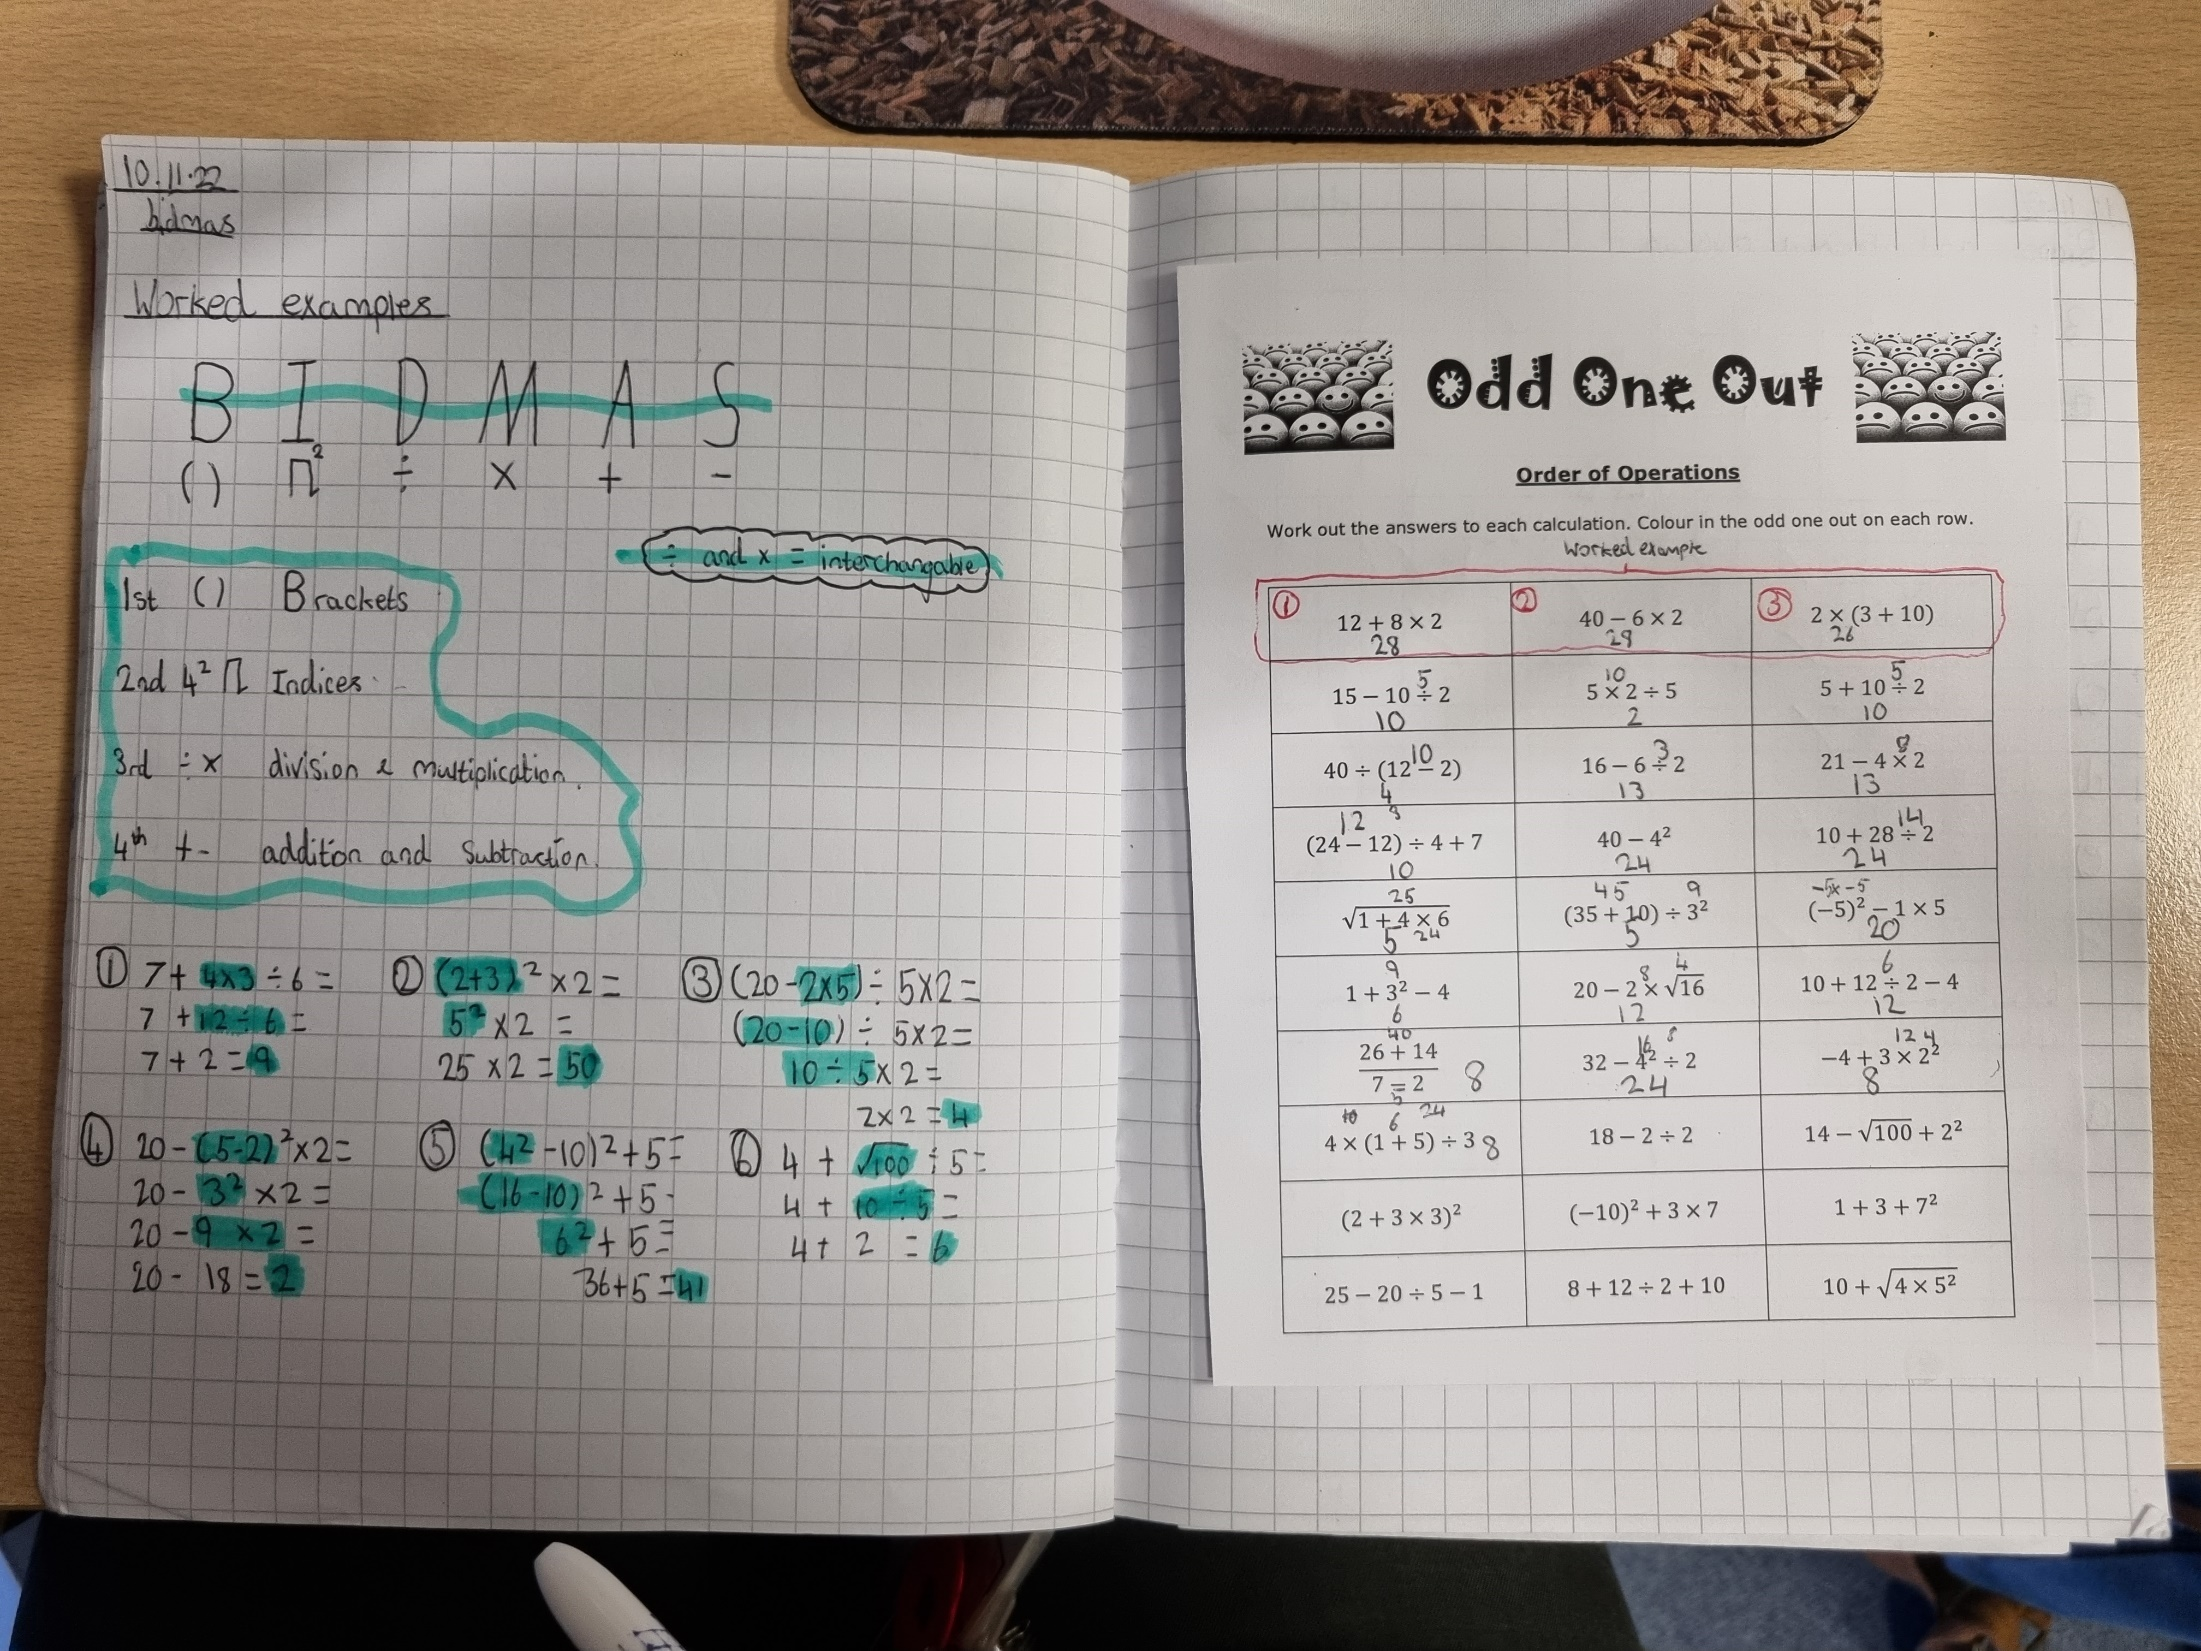 10.11.22
bidmas
Worked examples
B I D M A S
( ) П² ÷ × + −
÷ and x = interchangable
1st ( ) Brackets
2nd 4² П Indices
3rd ÷ x division & multiplication.
4th + - addition and Subtraction.
① 7 + 4x3 ÷ 6 =
7 + 12 ÷ 6 =
7 + 2 = 9
② (2+3)² × 2 =
5² × 2 =
25 × 2 = 50
③ (20 - 2x5) ÷ 5x2 =
(20-10) ÷ 5x2 =
10 ÷ 5 x 2 =
2x2 = 4
④ 20 - (5-2)² x2 =
20 - 3² x2 =
20 - 9 x 2 =
20 - 18 = 2
⑤ (4² - 10)² + 5 =
(16-10)² + 5 -
6² + 5 =
36+5 = 41
⑥ 4 + √100 ÷ 5 =
4 + 10 ÷ 5 =
4 + 2 = 6
Odd One Out
Order of Operations
Work out the answers to each calculation. Colour in the odd one out on each row.
Worked example
① 12 + 8 × 2 ② 40 − 6 × 2 ③ 2 × (3 + 10)
28 28 26
5 10 5
15 − 10 ÷ 2 5 × 2 ÷ 5 5 + 10 ÷ 2
10 2 10
10 3 8
40 ÷ (12 − 2) 16 − 6 ÷ 2 21 − 4 × 2
4 13 13
12 3 14
(24 − 12) ÷ 4 + 7 40 − 4² 10 + 28 ÷ 2
10 24 24
25 45 9 -5x-5
√1 + 4 × 6 (35 + 10) ÷ 3² (−5)² − 1 × 5
5 24 5 20
9 8 4 6
1 + 3² − 4 20 − 2 × √16 10 + 12 ÷ 2 − 4
6 12 12
40 16 8 12 4
26 + 14
7 − 2 8 32 − 4² ÷ 2 −4 + 3 × 2²
5 24 8
6 24
4 × (1 + 5) ÷ 3 8 18 − 2 ÷ 2 14 − √100 + 2²
(2 + 3 × 3)² (−10)² + 3 × 7 1 + 3 + 7²
25 − 20 ÷ 5 − 1 8 + 12 ÷ 2 + 10 10 + √4 × 5²